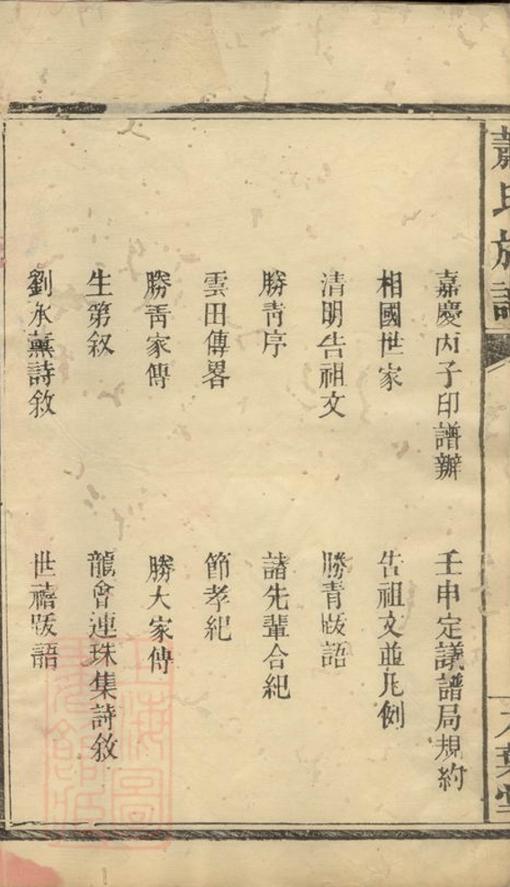 蕭氏族譜
嘉慶丙子印譜辦
壬申定議譜局規約
相國世家
告祖文並凡例
清明告祖文
勝青跋語
勝青序
諸先輩合紀
雲田傳畧
節孝紀
勝青家傳
勝大家傳
生第叙
龍會連珠集詩敘
劉永薰詩敘
世禧跋語
八葉堂
上海圖書館藏